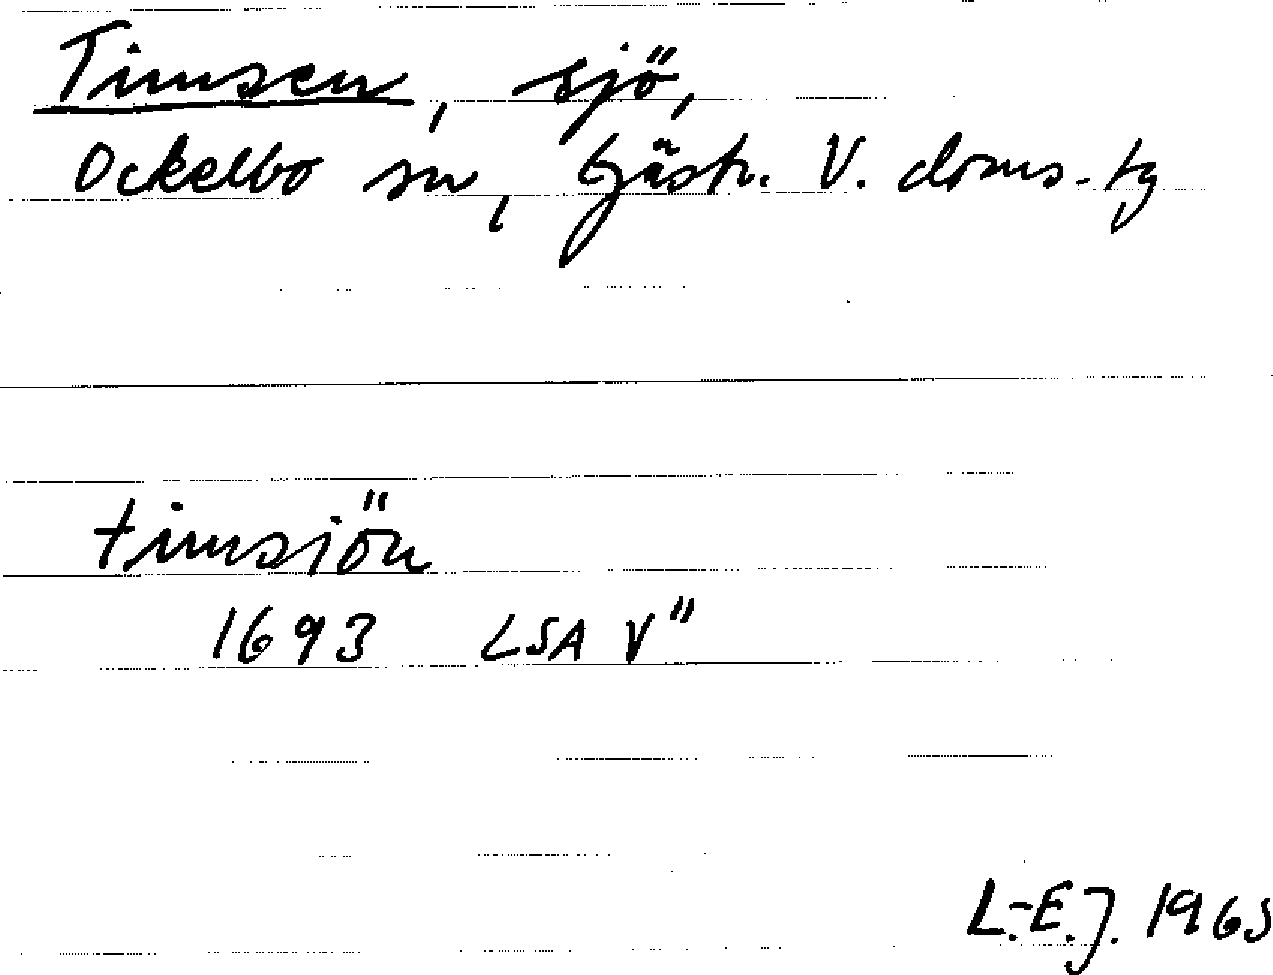 Timsen, sjö,
Ockelbo sn, Gästr. V. doms. tg
timsiön
1693 LSA V"
L.-E.J. 1965